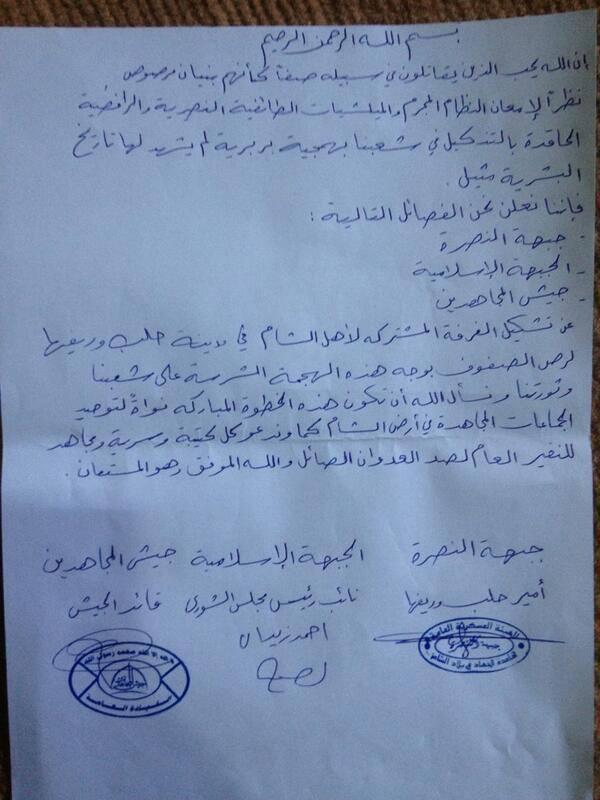 بسم الله الرحمن الرحيم
إن الله يحب الذين يقاتلون في سبيله صفاً كأنهم بنيان مرصوص
نظراً لإمعان النظام المجرم والميلشيات الطائفية النصرية والرافضية
الحاقدة بالتنكيل في شعبنا بهمجية بربرية لم يشهد لها تاريخ
البشرية مثيل .
فإننا نعلن نحن الفصائل التالية :
- جبهة النصرة
- الجبهة الإسلامية
- جيش المجاهدين
عن تشكيل الغرفة المشتركه لأهل الشام في مدينة حلب وريفها
لرص الصفوف بوجه هذه الهجمة الشرسة على شعبنا
وثورتنا ونسأل الله أن تكون هذه الخطوة المباركه نواةً لتوحيد
الجماعات المجاهدة في أرض الشام كما وندعو كل كتيبة وسرية ومجاهد
للنفير العام لصد العدوان الصائل والله الموفق وهو المستعان .
جبهة النصرة الجبهة الإسلامية جيش المجاهدين
أمير حلب وريفها نائب رئيس مجلس الشورى قائد الجيش
احمد
الهيئة العسكرية العامة
جبهة النصرة
قاعدة الجهاد في بلاد الشام
لا إله إلا الله محمد رسول الله
جيش المجاهدين
القيادة العامة